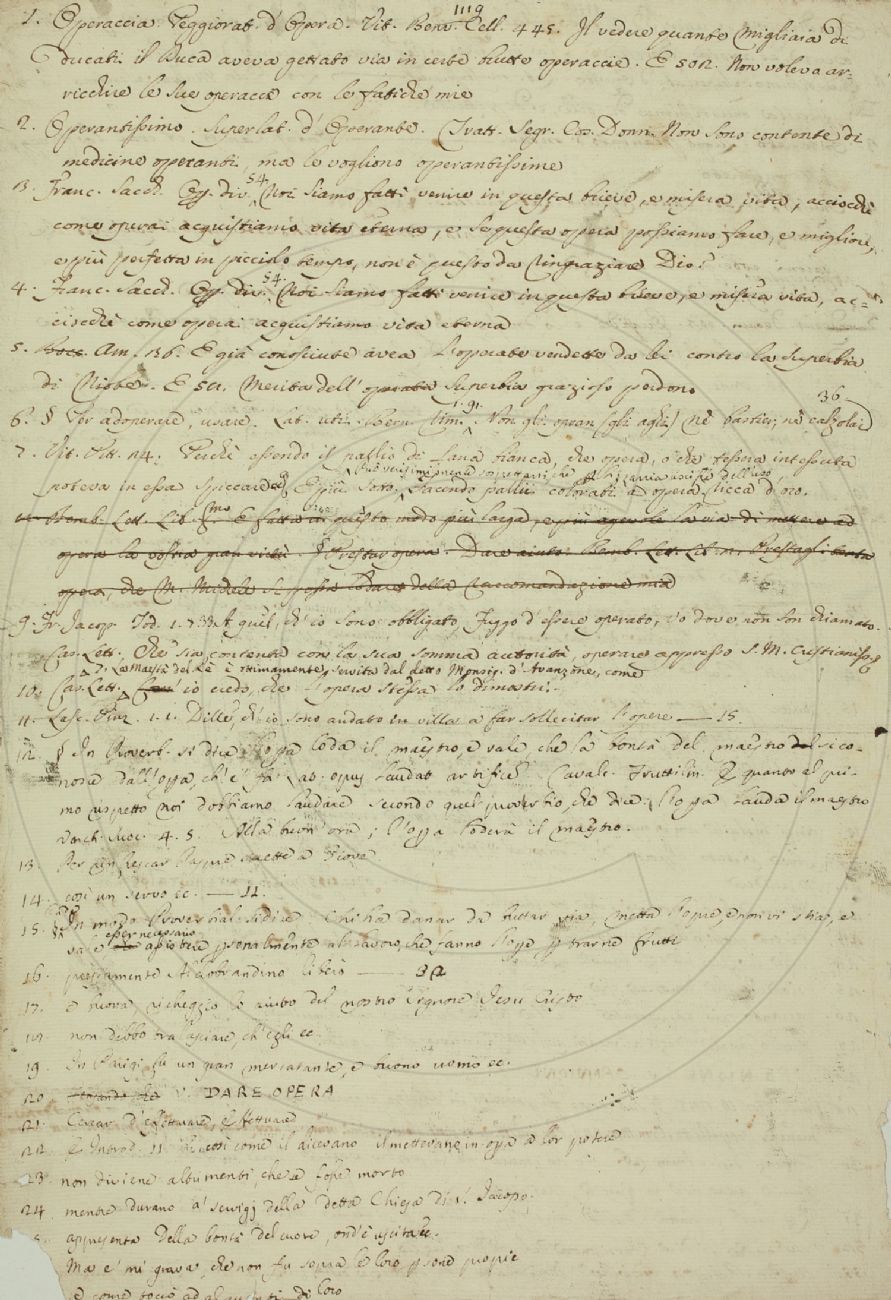 1119
1. Operaccia. Peggiorat. d'Opera. Vit. Benv. Cell. 445. Il vedere quante migliaia di
ducati il Duca aveva gettato via in certe brutte operaccie. E 502. Non voleva ar-
ricchire le sue operacce con le fatiche mie
2. Operantissimo. Superlat. d'Operante. Tratt. Segr. Cos. Donn. Non sono contente di
medicine operanti, ma le vogliono operantissime
3. Franc. Sacch. Op. div. 54. Noi siamo fatti venire in questa brieve, e misera vita, acciocchè
come operai acquistiamo vita eterna, e se questa opera possiamo fare, e migliore,
e più perfetta in picciolo tempo, non è questo da ringraziare Dio?
4. Franc. Sacch. Op. div. 54. Noi siamo fatti venire in questa brieve, e misera vita, ac-
ciocchè come operai acquistiamo vita eterna
5. Bocc. Am. 136. E già conosciute avea l'operate vendette da lei contro la superbia
di Niobe. E 50. Merita dell'operata superbia grazioso perdono
36
6. § Per adoperare, usare. Lat. uti. Bern. rim. 1. 91. Non gli opran (gli agli) nè barbier, nè calzolai
7. Vit. Pitt. 24. Perchè essendo il pallio di lana bianca, che opera, o che tessera intessuta
poteva in essa spiccare E più sotto: Facendo pallii colorati ad opera ricca d'oro.
Bemb. Lett. Lib. E fatta in questo modo più larga, e più agevole la via di mettere ad
opera la vostra gran virtù. § Prestar opera. Dare aiuto. Bemb. Lett. Lib. Prestagli tanta
opera, che M. Michele si possa lodare della raccomandazione mia
9. Fr. Jacop. Tod. 1. 7. A quel, ch'io sono obbligato, Fuggo d'essere operato, Vo dove non son chiamato.
Cas. Lett. Che sia contenta con la sua somma autorità, operare appresso S. M. Cristianiss.
di La Maestà del Rè è ottimamente servita dal detto Monsig. d'Avanzone, come
10. Cas. Lett. io credo, che l'opera stessa lo dimostri.
11. Lasc. Pinz. 1. 1. Dille, ch'io sono andato in villa a far sollecitar l'opere — 15.
12. § In Proverb. si dice l'opa loda il maestro, e vale, che la bontà del maestro si co-
nosce dall'opa, ch'e' fa. Lat. opus laudat artificem. Cavalc. Frutti lin. E quanto al pri-
mo rispetto noi dobbiamo laudare secondo quel proverbio, che dice: l'opa lauda il maestro
Varch. Suoc. 4. 5. Alla buon'ora; l'opa loderà il maestro.
13. Per rinfrescar l'aspre saette a Giove
14. così un servo ec. — 11.
15. § In modo Proverbial. si dice: Chi ha danar da buttar via, metta l'opre, e non vi stia, e
vale esser necessario assistere psonalmente al lavoro, che fanno l'opre p trarne frutti
16. pensamente Aldobrandino libero — 32
17. è buona richeggio lo aiuto del nostro Signore Jesu Cristo
18. non debbo tralasciare, ch'egli ec.
19. In Parigi fu un gran mercatante, e buono uomo ec.
20. V. DARE OPERA
21. Cercar d'effettuare, effettuare
22. E Introd. 11 E così come il dicevano il mettevano in opa a lor potere
23. non diviene altrimenti, che se fosse morto
24. mentre durano a' servigj della detta Chiesa di S. Jacopo.
appresenta della bontà del cuore, ond'è uscita ec.
Ma e' mi grava, che non fu sopra le loro psone proprie
e come
loro